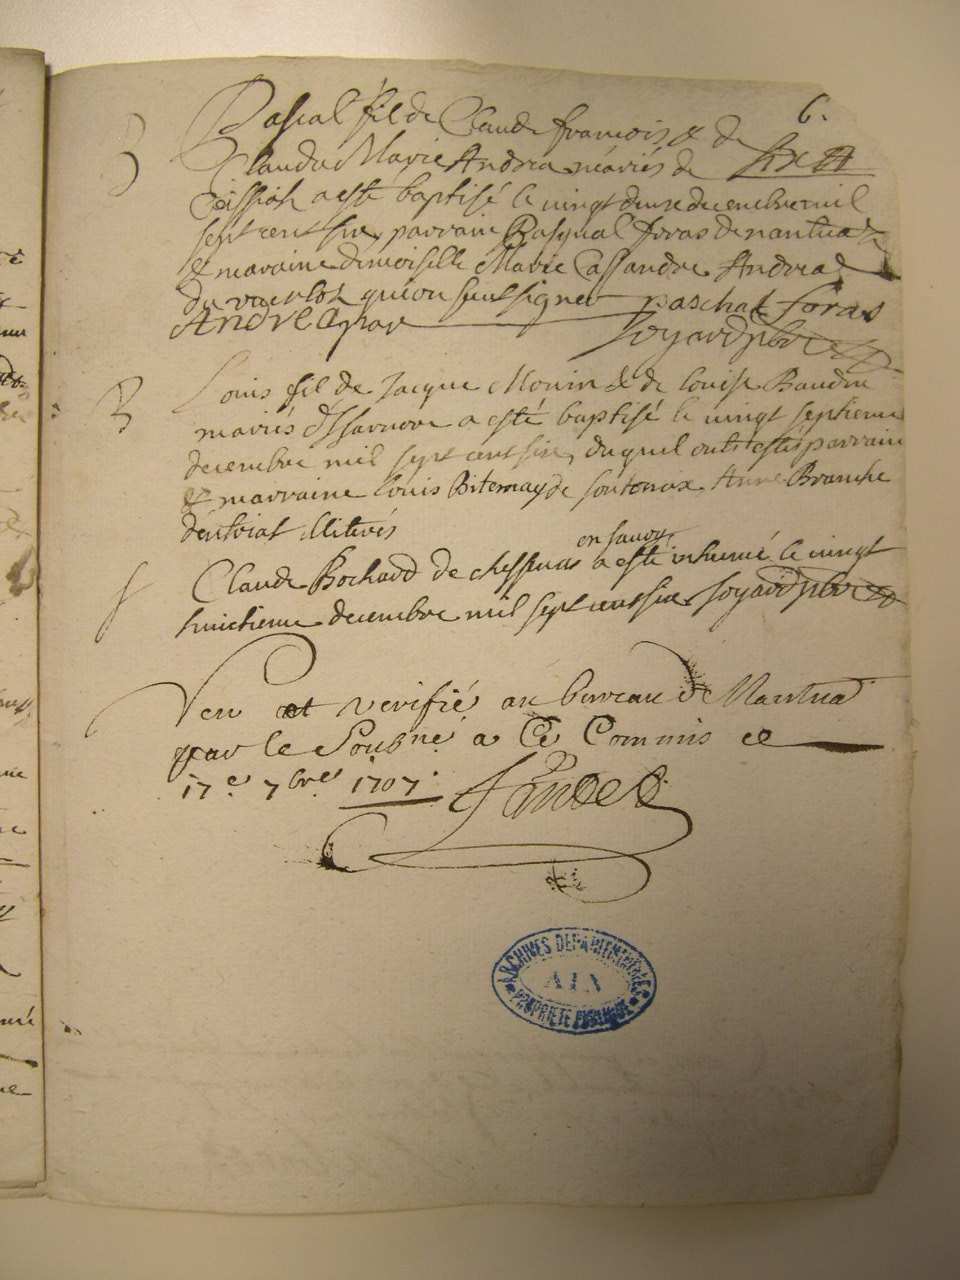 6.
B Pascal fil de Claude françois & de
Claude Marie Andrea mariés de
a esté baptisé le vingt deuxe decembre mil
sept cent six, parrain Pasqual foras de nantua
& maraine demoiselle Marie Cassandre Andrea
qui ont soubsigner paschal foras
Andrea Joyard pbre
B Louis fil de Jacque Monin & de louise Baudin
mariés a esté baptisé le vingt septieme
decembre mil sept cent six, duquel ont estés parrain
& marraine louis de Anne Branche
illiterés
S Claude Bochard de en savoy a esté inhumé le vingt
huictieme decembre mil sept cent six Joyard pbre
Veu et verifié au bureau de Nantua
par le Soubné a Ce Commis ce
17e 7bre 1707.
ARCHIVES DEPARTEMENTALES
AIN
PROPRIETE PUBLIQUE